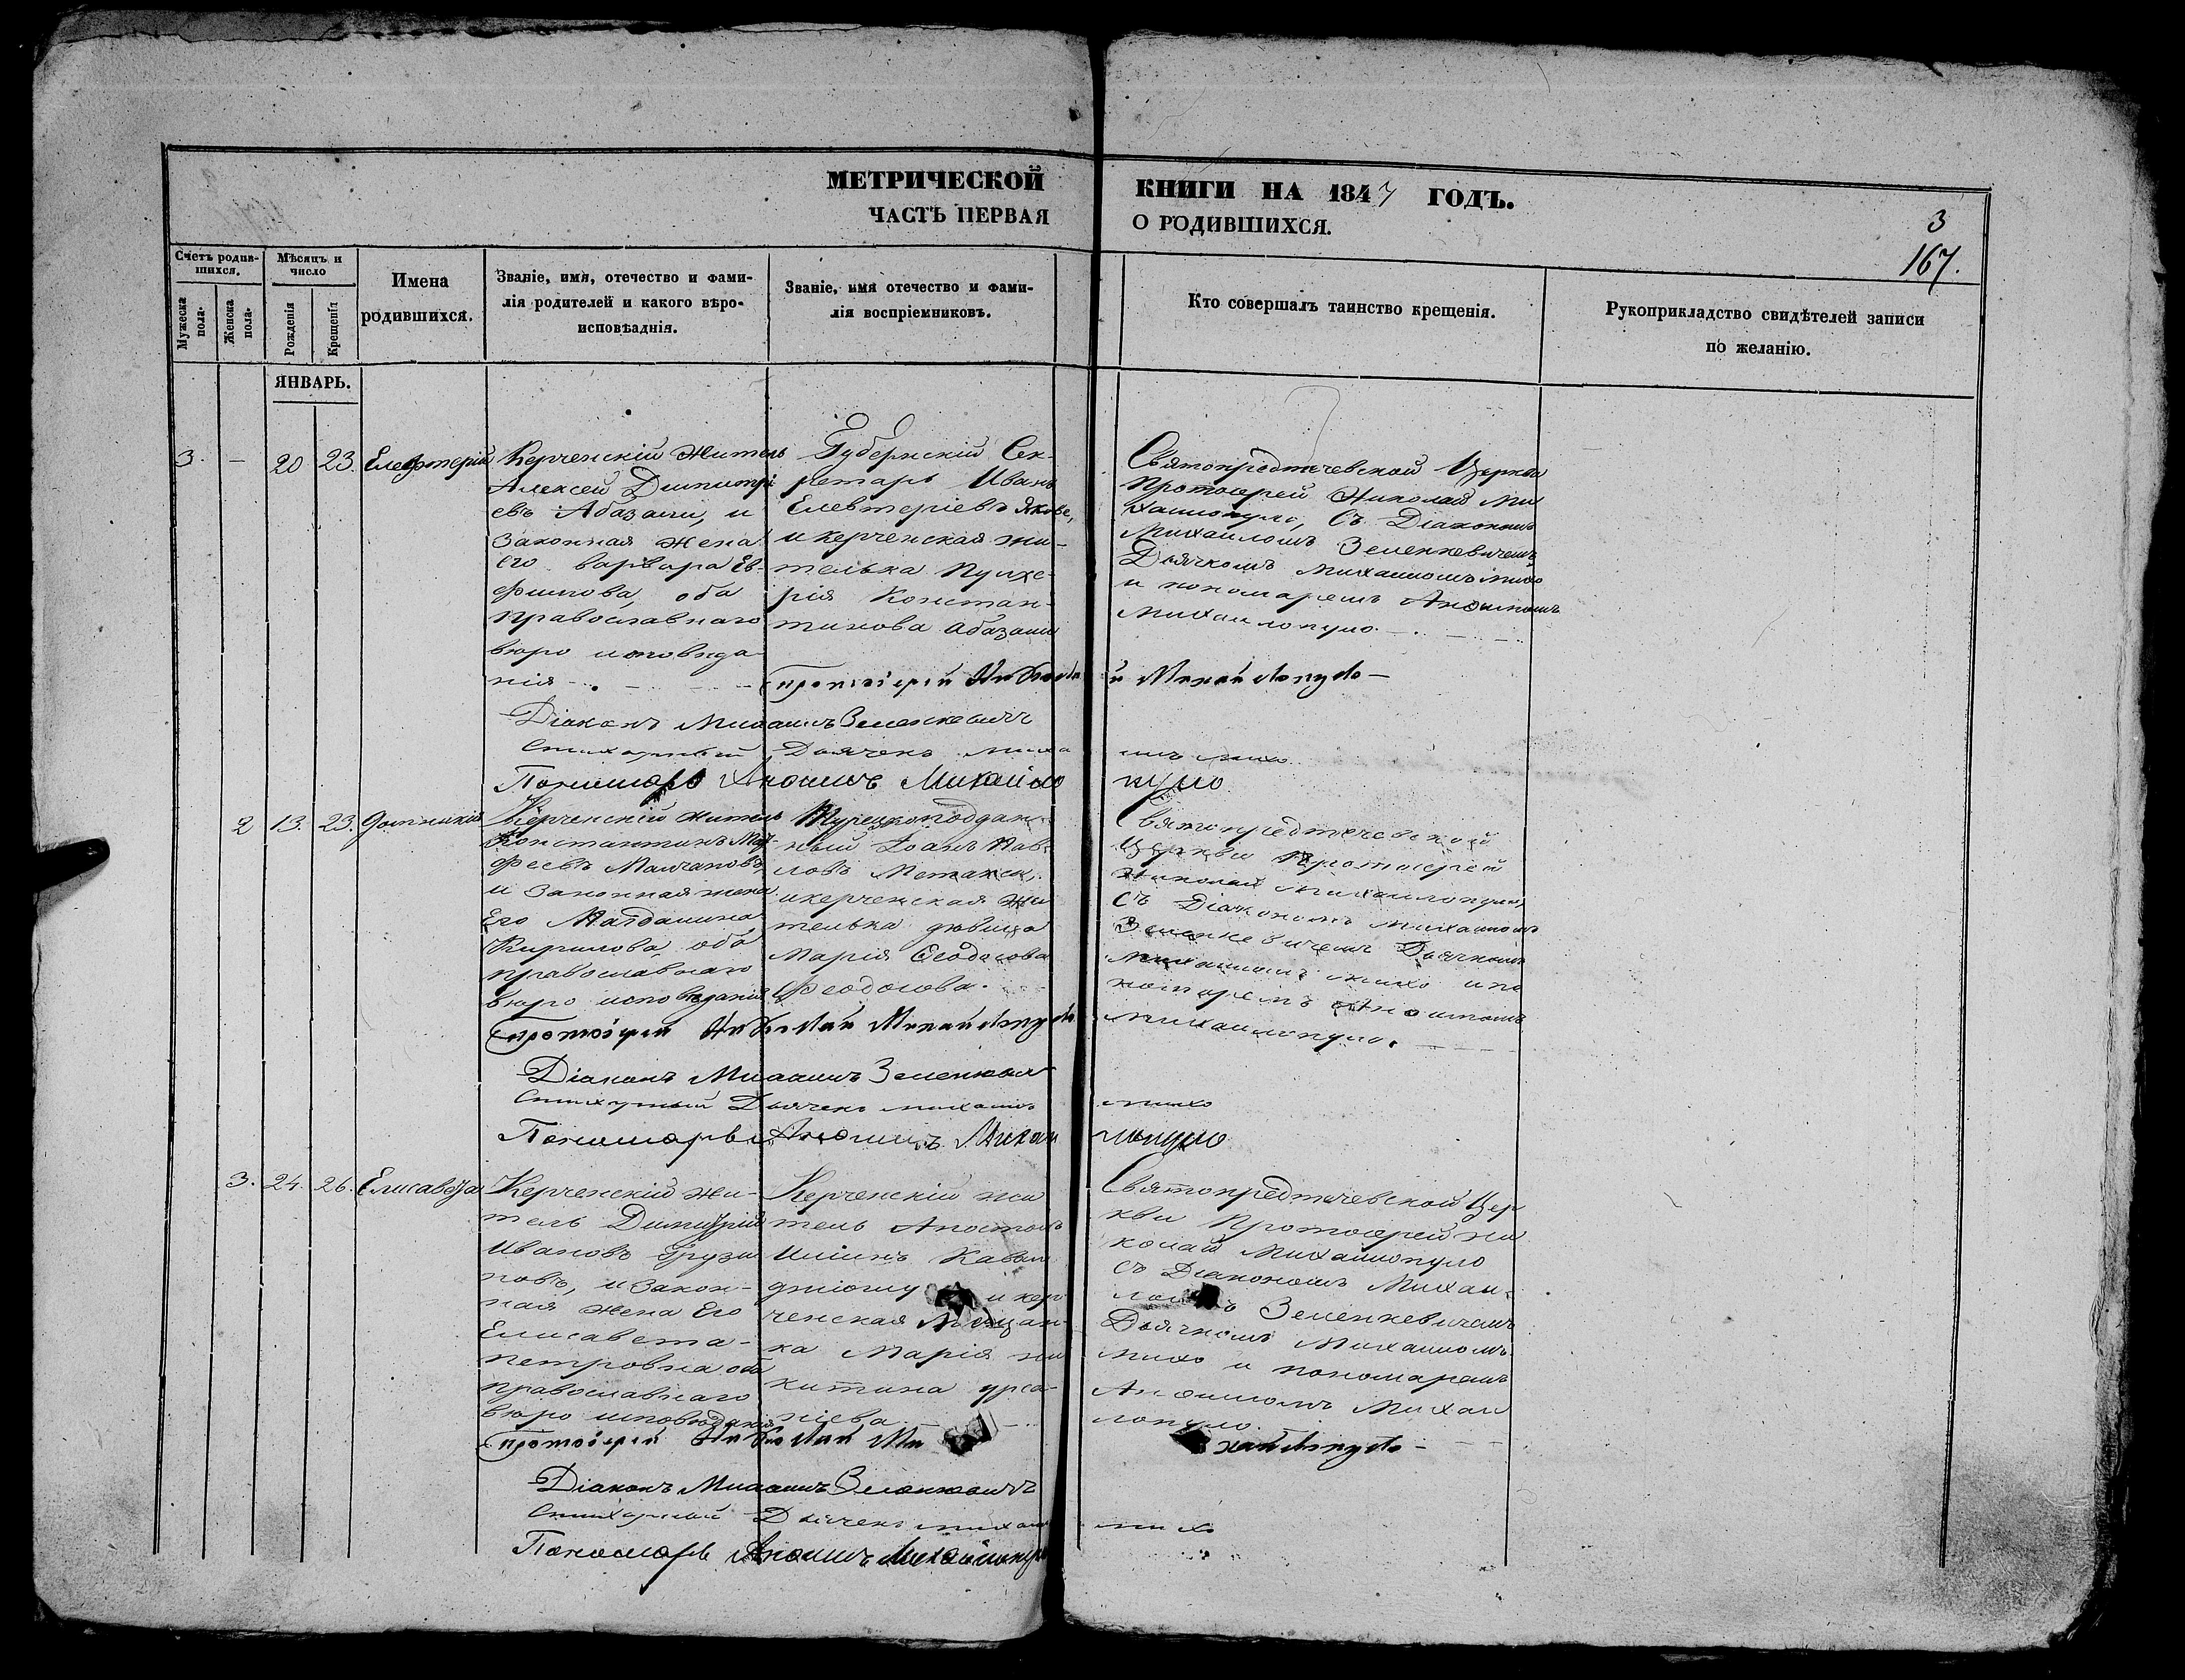 МЕТРИЧЕСКОЙ КНИГИ НА 1847 ГОДЪ.
ЧАСТЬ ПЕРВАЯ О РОДИВШИХСЯ.
3
167.
Счетъ родив-
шихся.
Мужеска
пола.
Женска
пола.
Мѣсяцъ и
число
Рожденія
Крещенія
Имена
родившихся.
Званіе, имя, отечество и фами-
лія родителей и какого вѣро-
исповѣданія.
Званіе, имя отечество и фами-
лія воспріемниковъ.
Кто совершалъ таинство крещенія.
Рукоприкладство свидѣтелей записи
по желанію.
ЯНВАРЬ.
3. — 20 23. Елефтерій
Керченскій житель
Алексей Димитрі
евъ Абазали, и
законная жена
его варвара Ев-
фимова, оба
православнаго
вѣро исповѣда
нія
Губернскій Сек-
ретарь Иванъ
Елевтеріевъ
и керченская жи-
телька Пулхе-
рія Констан-
тинова Абазали
Святопредтечевской Церкви
Протоіерей Николай Ми
хаилопуло, Съ Діакономъ
Михаиломъ Зеленкевичемъ
Дьячкомъ Михаиломъ Михо
и пономаремъ Анфимомъ
Михаилопуло.
Протоіерей Николай Михайлопуло
Діаконъ Михаилъ Зеленкевичъ
Стихарный Дьячекъ Михаилъ Михо
Пономарь Анфимъ Михайлопуло
2 13. 23.
Керченскій житель
Константинъ Мат-
феевъ Молчановъ
и законная жена
Его Магдалина
Кирилова, оба
православнаго
вѣро исповѣданія
Турецкоподдан-
ный Іоанъ Пав-
ловъ Метакса,
и керченская жи
телька дѣвица
Марія Феодосова
Феодосова.
Святопредтечевской
Церкви Протоіерей
Николай Михаилопуло,
съ Діакономъ Михаиломъ
Зеленкевичемъ Дьячкомъ
Михаиломъ Михо и по
номаремъ Анфимомъ
Михаилопуло.
Протоіерей Николай Михайлопуло
Діаконъ Михаилъ Зеленкевичъ
Стихарный Дьячекъ Михаилъ Михо
Пономарь Анфимъ Михайлопуло
3. 24. 26. Елисавета
Керченскій жи-
тель Димитрій
Ивановъ Грузи
новъ, и закон-
ная жена Его
Елисавета
Петровна оба
православнаго
вѣро исповѣданія
Керченскій жи
тель Апостолъ
и кер
ченская Мещан-
ка Марія Ни
китина
Святопредтечевской Цер
кви Протоіерей Ни
колай Михаилопуло
съ Діакономъ Михаи-
ломъ Зеленкевичемъ
Дьячкомъ Михаиломъ
Михо и пономаремъ
Анфимомъ Михаи
лопуло.
Протоіерей Николай Михайлопуло
Діаконъ Михаилъ Зеленкевичъ
Стихарный Дьячекъ Михаилъ Михо
Пономарь Анфимъ Михайлопуло